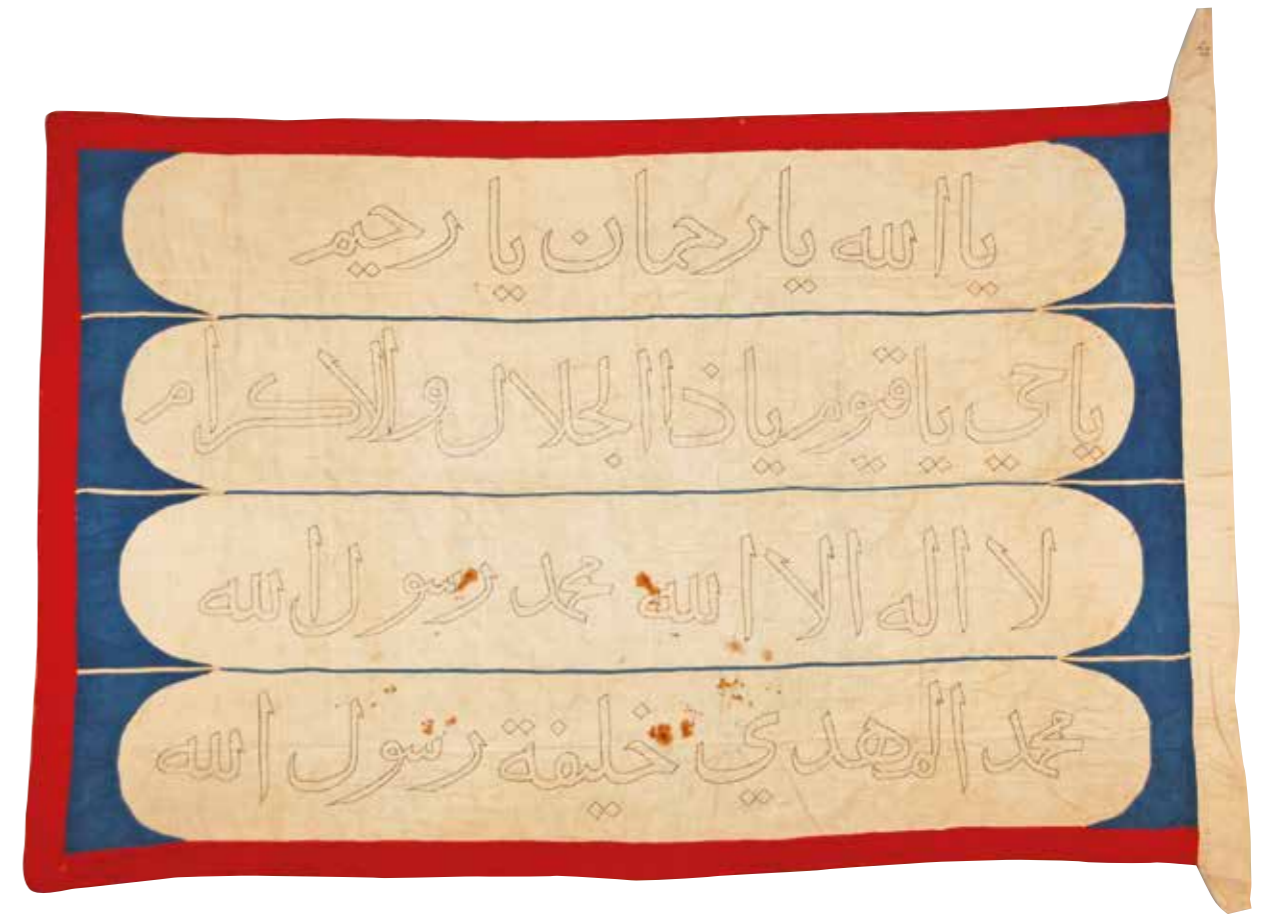 يا الله يا رحمان يا رحيم
ياحي ياقيوم ياذا الجلال والاكرام
لا اله الا الله محمد رسول الله
محمد المهدي خليفة رسول الله